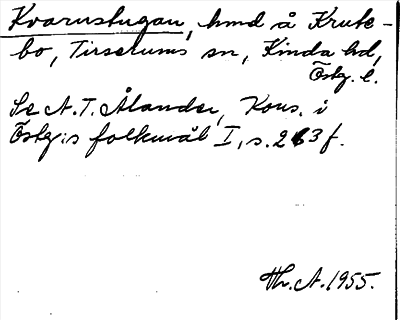 Kvarnstugan, hmd å Kruke-
bo, Tirserums sn, Kinda hd,
Östg. l.
Se A. T. Ålander, Kons. i
Östg:s folkmål I, s. 263 f.
Hr. A. 1955.